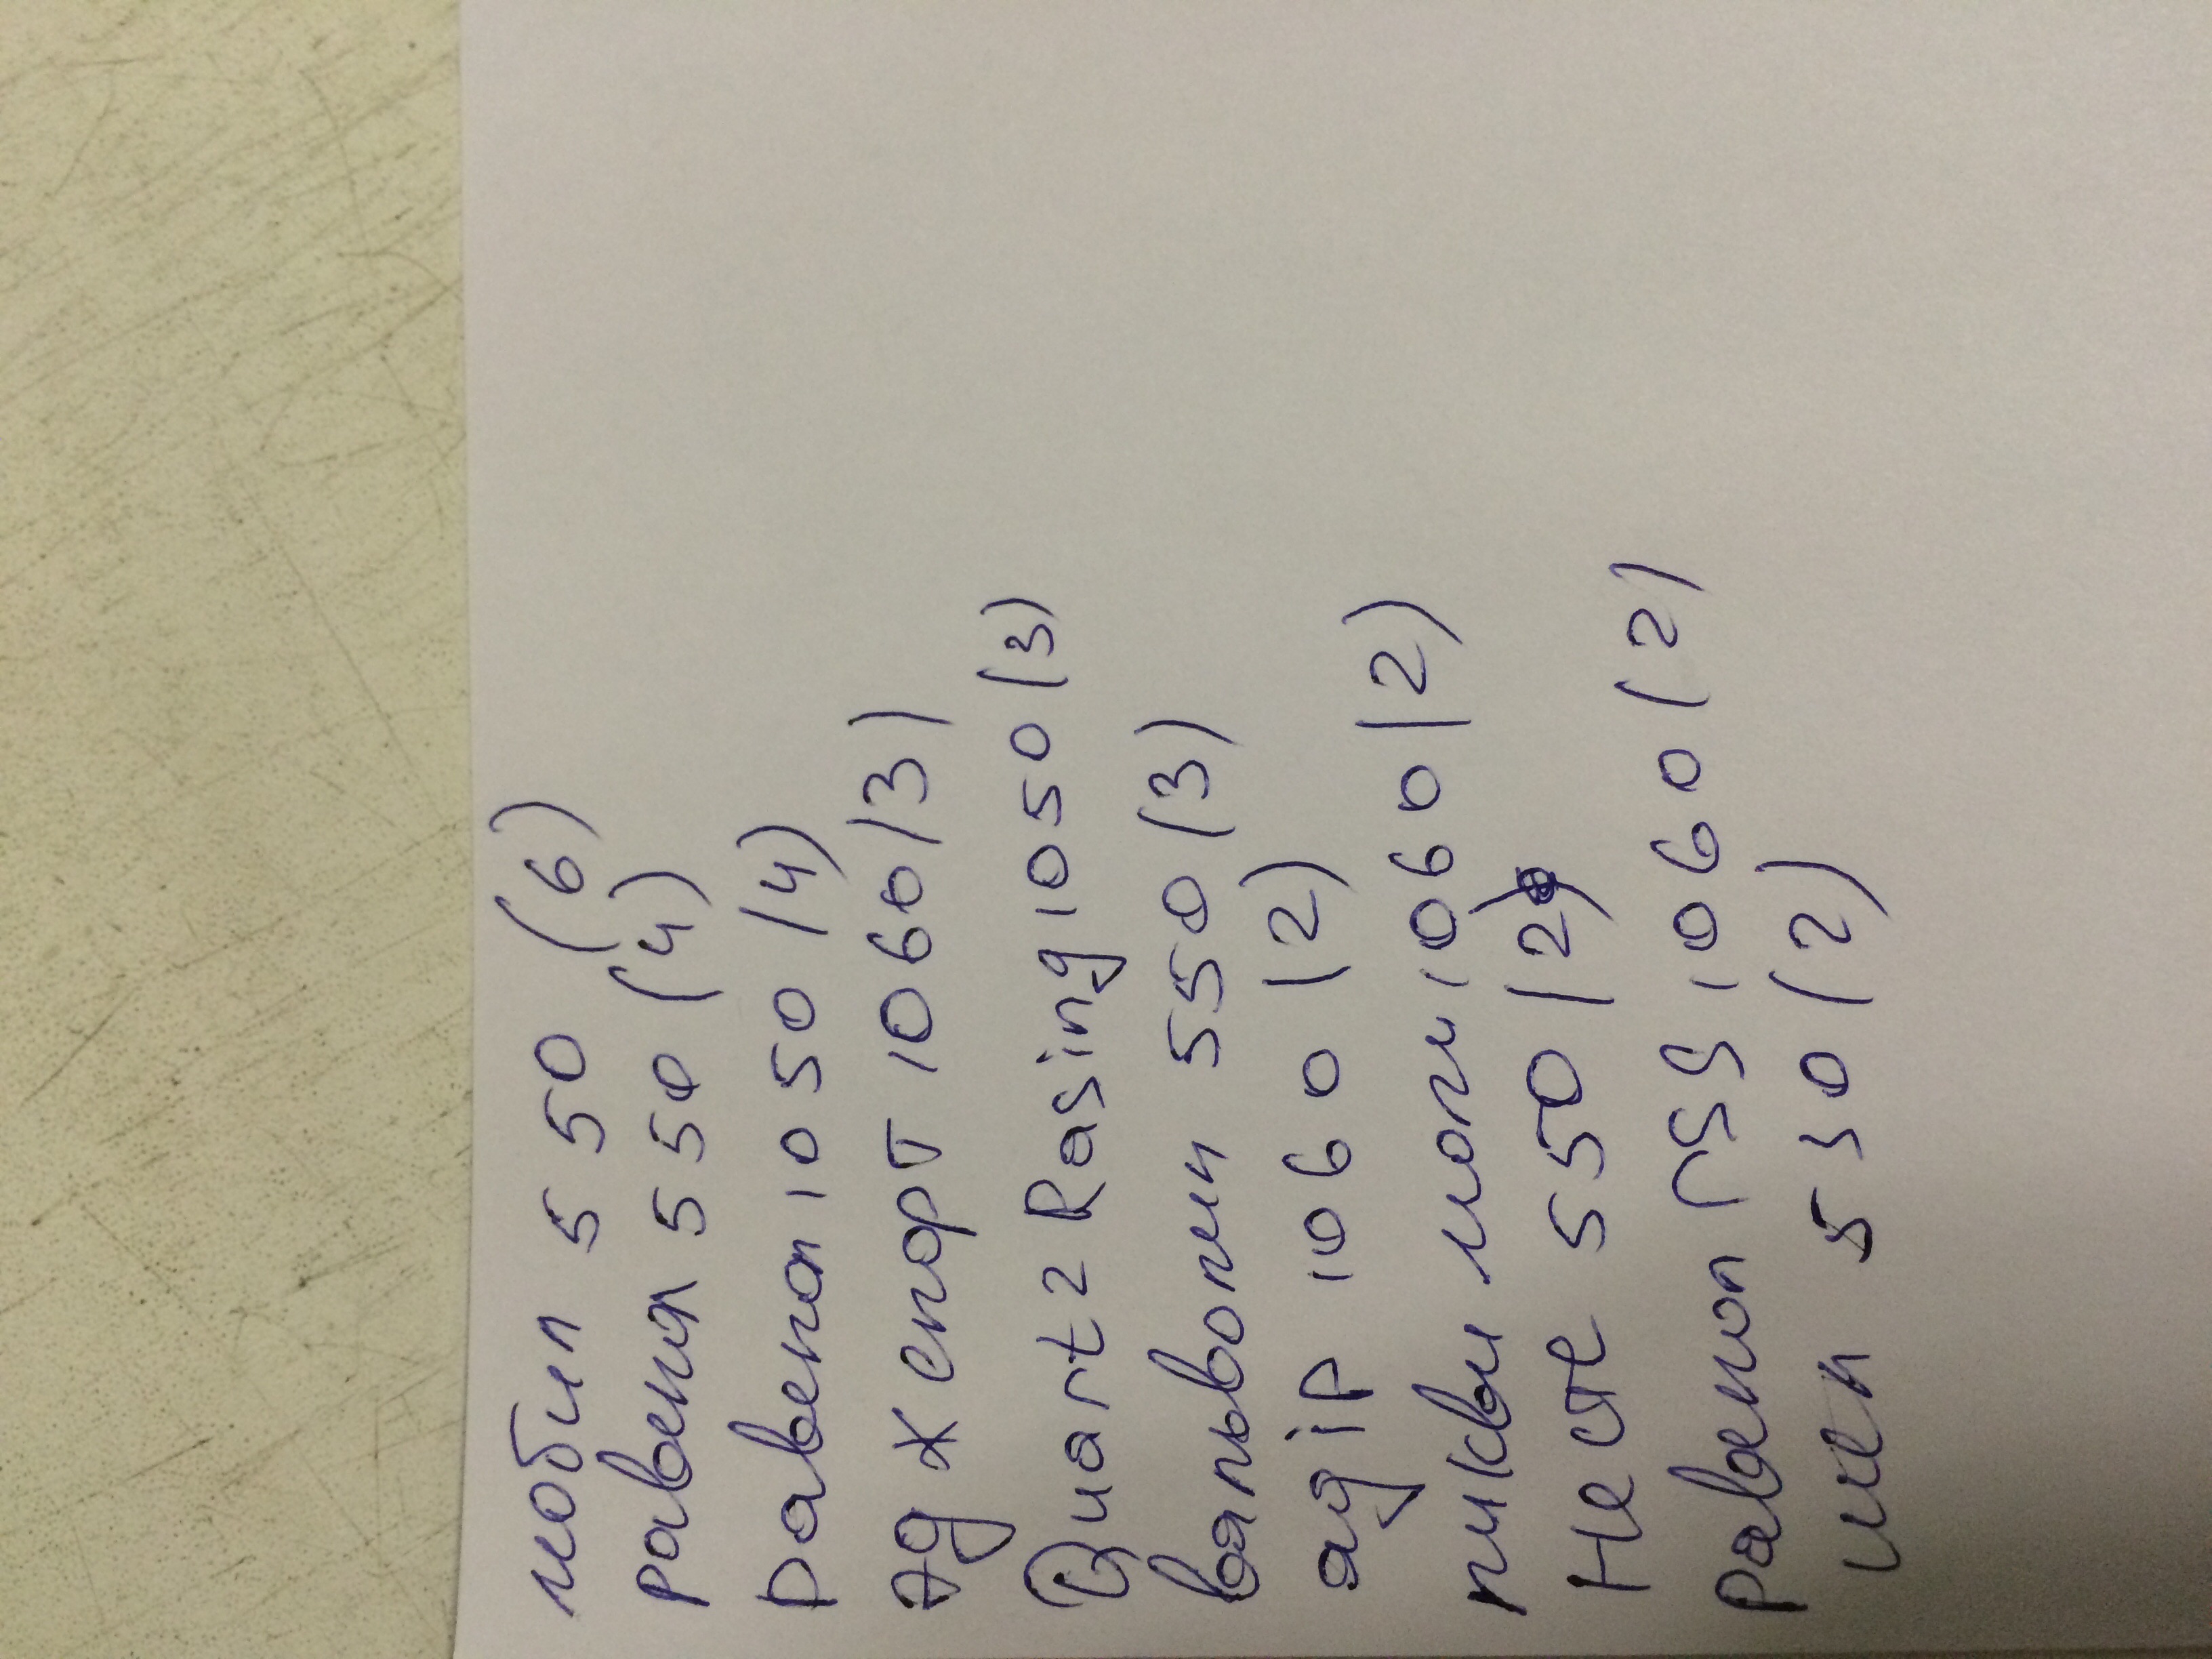 мобил 5 50 (6)
равенол 550 (4)
равенол 1050 (4)
Ag x спорт 1060 (3)
Quartz Rasing 1050 (3)
вальволин 550 (3)
agip 1060 (2)
ликви моли 1060 (2)
Несте 550 (2)
равенол 1060 (2)
550 (2)